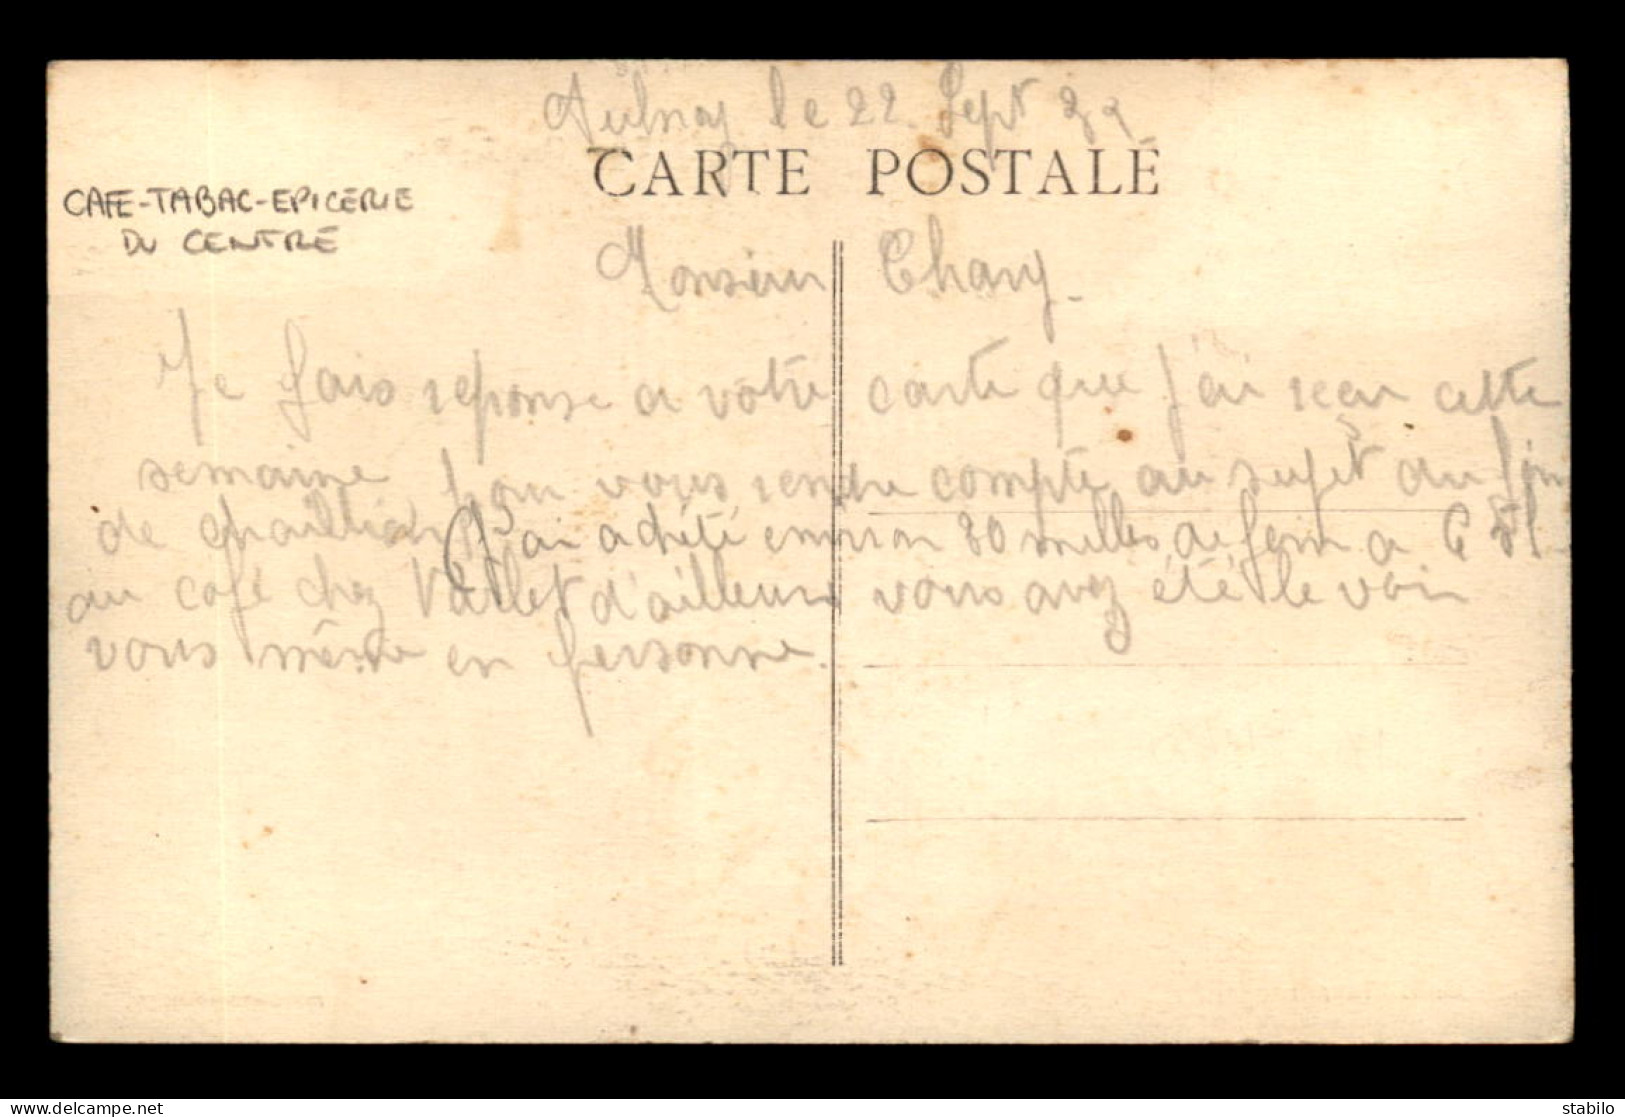 Aulnay le 22 Sept
CARTE POSTALE
CAFE-TABAC-EPICERIE
DU CENTRE
Monsieur
Je fais reponse a votre carte que j'ai recu cette
semaine pour vous rendre compte au sujet du foin
de J'ai acheté environ 80 milles de foin a 6
au café chez Vallet d'ailleurs vous avez été le voir
vous même en personne.
stabilo